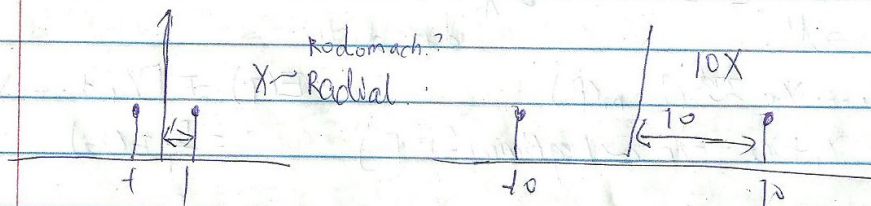 Rodomach.?
X ~ Radial.
10X
1
10
-1 1
-10 10